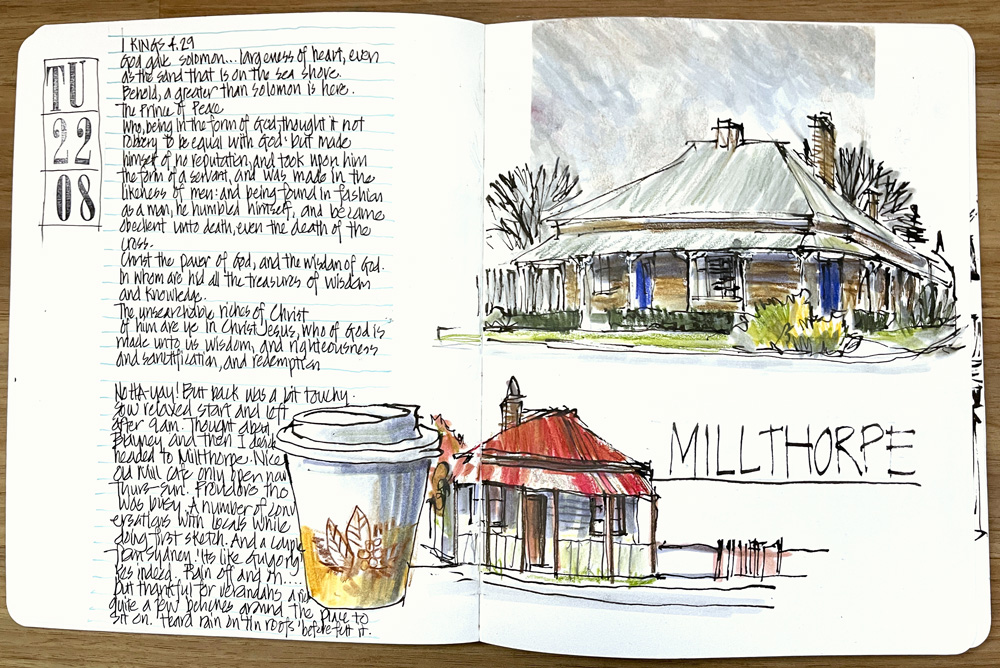 TU
22
08
1 KINGS 4.29
God gave solomon... largeness of heart, even
as the sand that is on the sea shore.
Behold, a greater than Solomon is here.
The Prince of Peace
Who, being in the form of God, thought it not
robbery to be equal with God: but made
himself of no reputation, and took upon him
the form of a servant, and was made in the
likeness of men: and being found in fashion
as a man, he humbled himself, and became
obedient unto death, even the death of the
cross.
Christ the power of God, and the wisdom of God.
In whom are hid all the treasures of wisdom
and knowledge.
The unsearchable riches of Christ
of him are ye in Christ Jesus, who of God is
made unto us wisdom, and righteousness
and sanctification, and redemption
But back was a bit touchy.
Slow relaxed start and left
after 9am. Thought about
Blayney and then I decide
headed to Millthorpe. Nice
old Mill Cafe only open now
Thurs-Sun. tho
was busy. A number of conv
ersations with locals while
doing first sketch. And a couple
from Sydney. 'Its like
Yes indeed. Rain off and on...
but thankful for verandahs and
quite a few benches around the place to
sit on. Heard rain on tin roofs before felt it.
MILLTHORPE